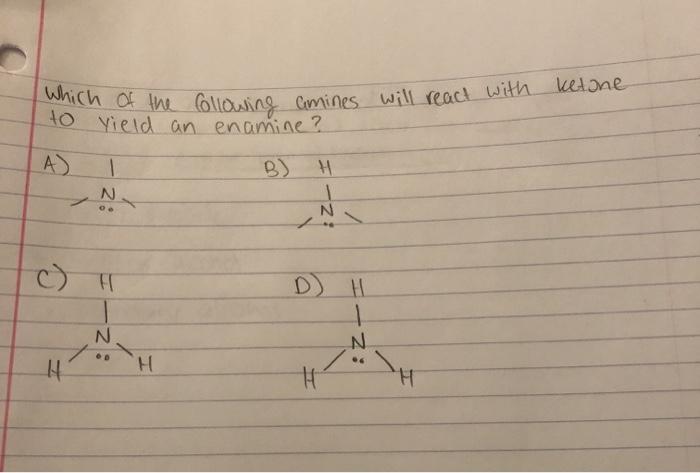 Which of the following amines will react with ketone
to yield an enamine?
A) B) H
N N
C) H D) H
N N
H H H H